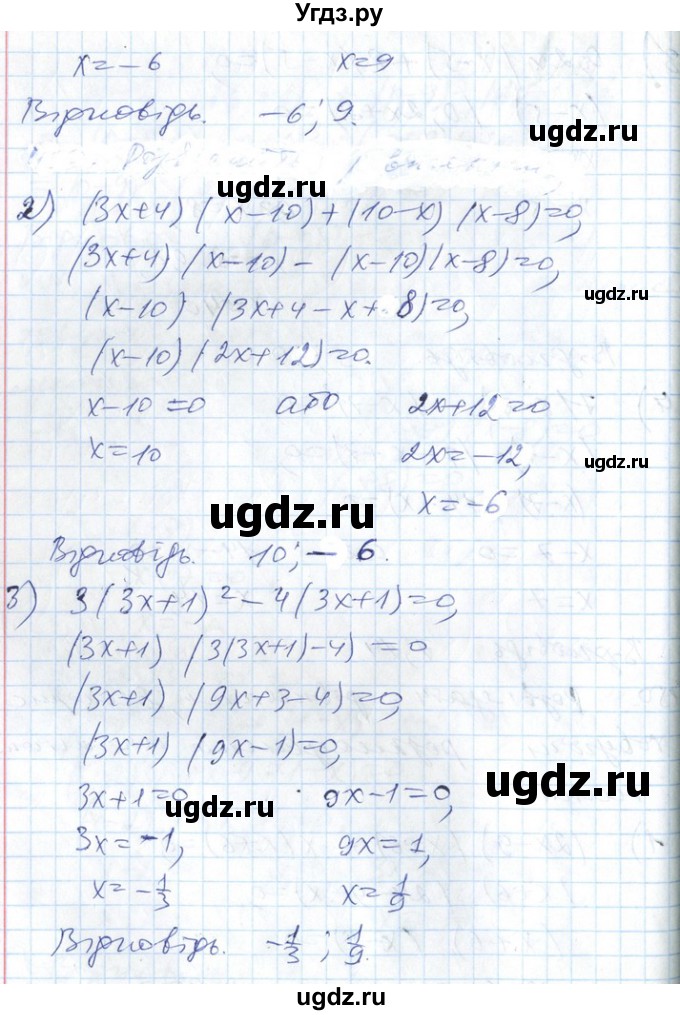 Угдз.ру
x=-6 x=9
Відповідь. -6; 9.
2) (3x+4) (x-10)+(10-x) (x-8)=0,
(3x+4) (x-10)-(x-10)(x-8)=0,
ugdz.ru
ugdz.ru
(x-10) (3x+4-x+8)=0,
(x-10) (2x+12)=0.
x-10=0 або 2x+12=0
x=10 2x=-12,
ugdz.ru
x=-6
ugdz.ru
Відповідь. 10; -6.
3) 3(3x+1)²-4(3x+1)=0,
(3x+1) (3(3x+1)-4)=0
(3x+1) (9x+3-4)=0,
ugdz.ru
(3x+1) (9x-1)=0,
ugdz.ru
3x+1=0 9x-1=0,
ugdz.ru
3x=-1, 9x=1,
x=-1/3 x=1/9
ugdz.ru
Відповідь. -1/3; 1/9.
ugdz.ru